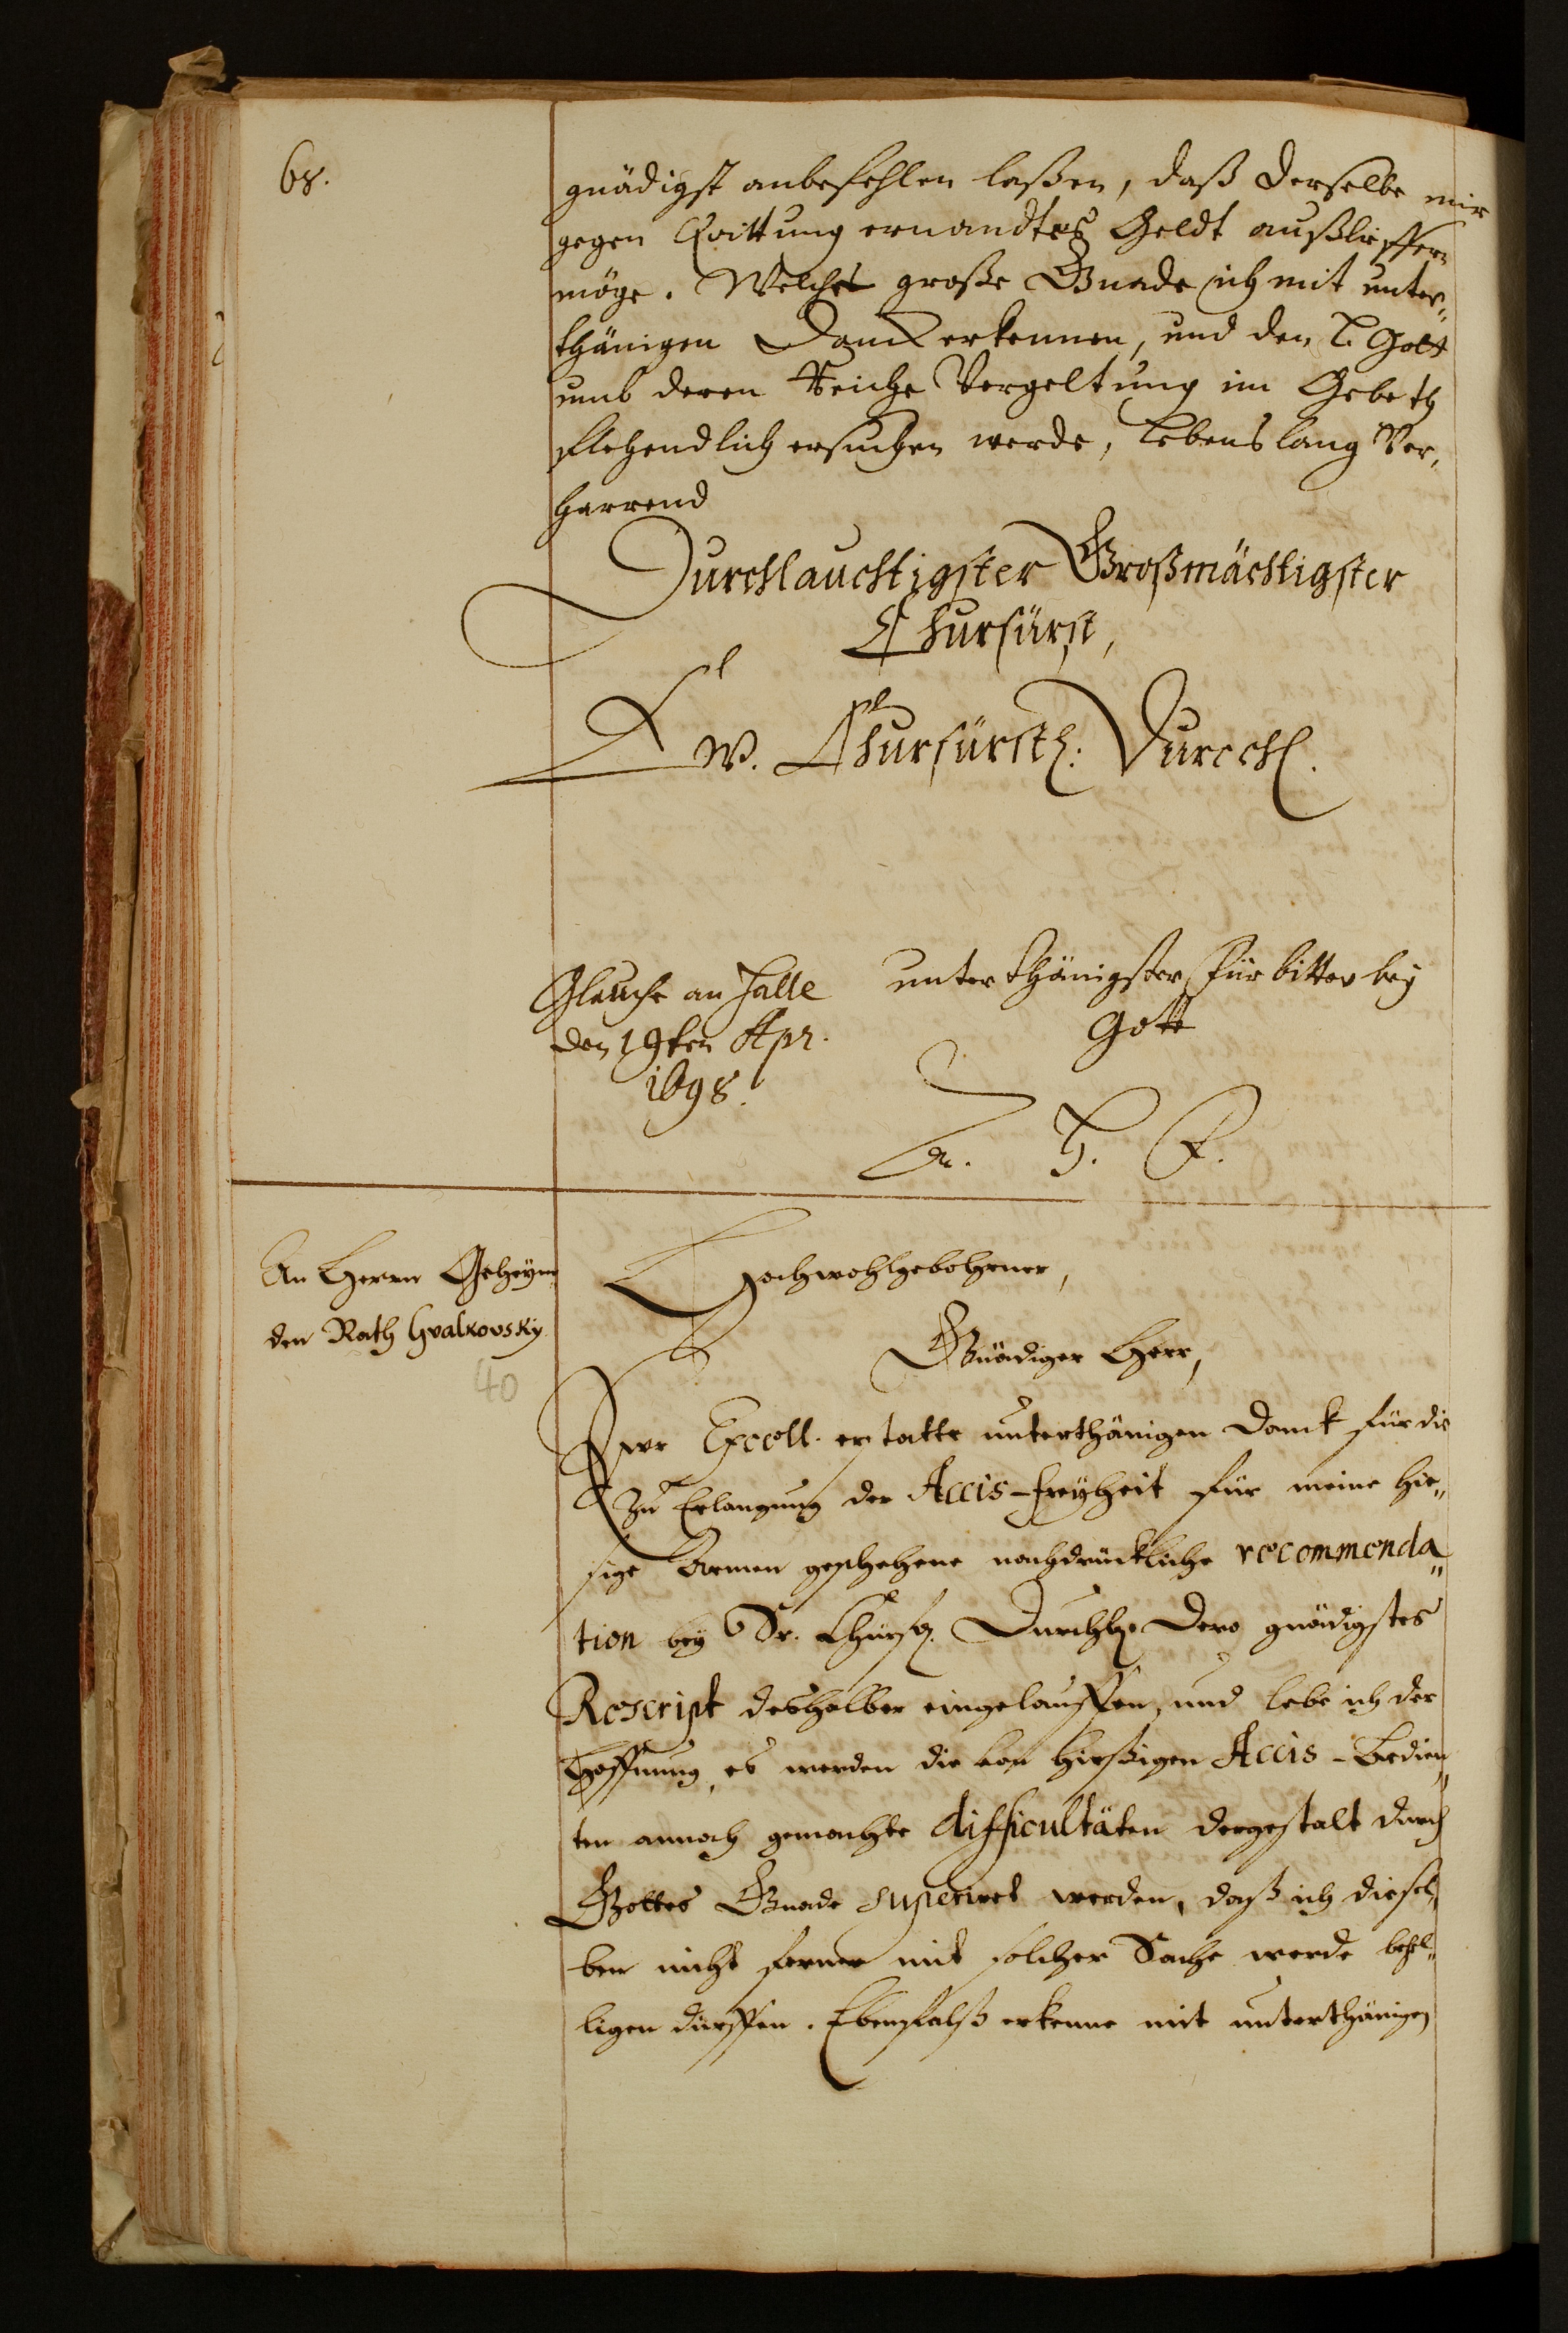 68.
gnädigst anbefehlen laßen, daß derselbe mir
gegen Qvittung ernandtes Geldt außlieffern
möge. Welches große Gnade ich mit unter„
thänigen Danck erkennen, und den L. Gott
umb deren Reiche Vergeltung im Gebeth
flehendlich ersuchen werde, Lebenslang Ver„
harrend
Durchlauchtigster Großmächtigster
Churfürst,
Ew. Churfürstl. Durchl.
unterthänigster Fürbitter bey
Gott
Glauche an Halle
den 19ten Apr.
1698.
A. H. F.
An Herrn Geheym„
den Rath Gvalkovsky
40
Hochwohlgebohrner,
Gnädiger Herr,
Ewr Excell. erstatte unterthänigen Danck für die
zu Erlangung der Accis-freyheit für meine hie„
sige Armen geschehene nachdrückliche recommenda„
tion bey Sr. Churfl. Durchl. Dero gnädigstes
Rescript deshalber eingelauffen, und lebe ich der
Hoffnung, es werden die von hießigen Accis-Bedien„
ten annoch gemachte difficultäten dergestalt durch
Gottes Gnade superiret werden, daß ich diesel„
ben nicht ferner mit solcher Sache werde behel„
ligen dürffen. Ebenfalß erkenne mit unterthänigen